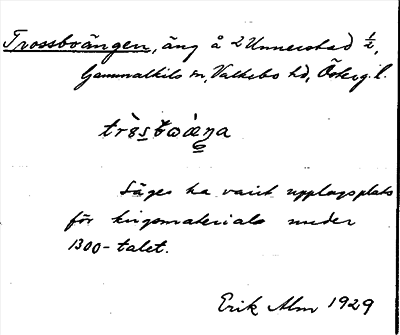 Trossboängen, äng å 2 Unnerstad ½,
Gammalkils sn, Valkebo hd, Österg. l.
Säges ha varit upplagsplats
för krigsmaterial under
1300-talet.
Erik Alm 1929